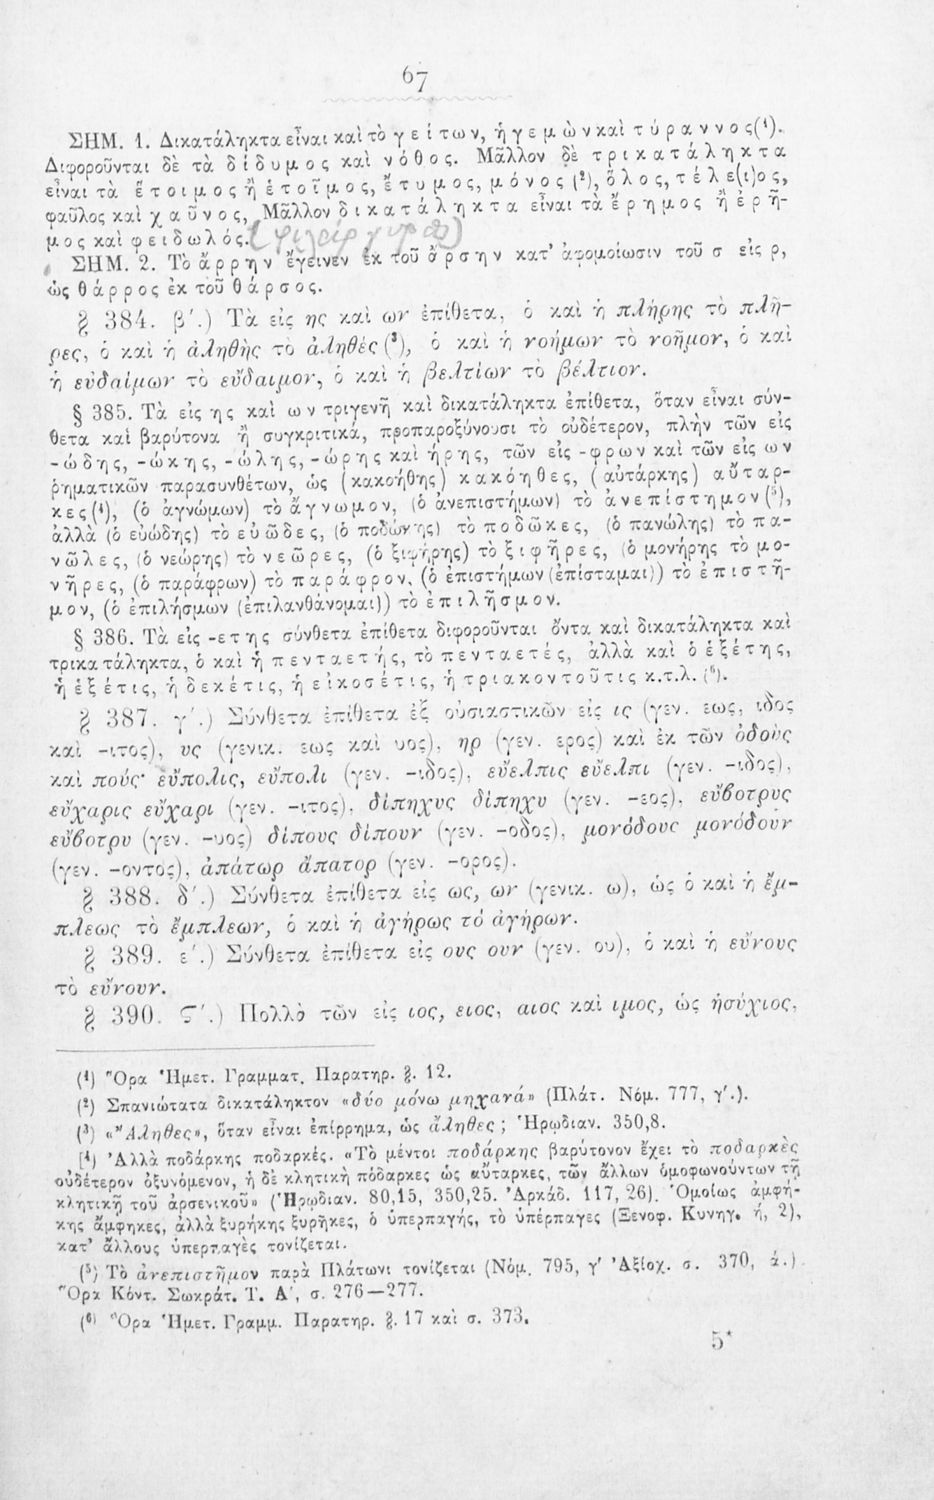 67
ΣΗΜ. 1. Δικατάληκτα εἶναι καὶ τὸ γείτων, ἡγεμὼν καὶ τύραννος(¹).
Διφοροῦνται δὲ τὰ δίδυμος καὶ νόθος. Μᾶλλον δὲ τρικατάληκτα
εἶναι τὰ ἕτοιμος ἢ ἑτοῖμος, ἔτυμος, μόνος (²), ὅλος, τέλε(ι)ος,
φαῦλος καὶ χαῦνος, Μᾶλλον δικατάληκτα εἶναι τὰ ἔρημος ἢ ἐρῆ-
μος καὶ φειδωλός.
ΣΗΜ. 2. Τὸ ἄρρην ἔγεινεν ἐκ τοῦ ἄρσην κατ' ἀφομοίωσιν τοῦ σ εἰς ρ,
ὡς θάρρος ἐκ τοῦ θάρσος.
§ 384. β'.) Τὰ εἰς ης καὶ ων ἐπίθετα, ὁ καὶ ἡ πλήρης τὸ πλῆ-
ρες, ὁ καὶ ἡ ἀληθὴς τὸ ἀληθὲς (³), ὁ καὶ ἡ νοήμων τὸ νοῆμον, ὁ καὶ
ἡ εὐδαίμων τὸ εὔδαιμον, ὁ καὶ ἡ βελτίων τὸ βέλτιον.
§ 385. Τὰ εἰς ης καὶ ων τριγενῆ καὶ δικατάληκτα ἐπίθετα, ὅταν εἶναι σύν-
θετα καὶ βαρύτονα ἢ συγκριτικά, προπαροξύνουσι τὸ οὐδέτερον, πλὴν τῶν εἰς
-ώδης, -ώκης, -ώλης, -ώρης καὶ ήρης, τῶν εἰς -φρων καὶ τῶν εἰς ων
ῥηματικῶν παρασυνθέτων, ὡς (κακοήθης) κακόηθες, (αὐτάρκης) αὔταρ-
κες(⁴), (ὁ ἀγνώμων) τὸ ἄγνωμον, (ὁ ἀνεπιστήμων) τὸ ἀνεπίστημον(⁵),
ἀλλὰ (ὁ εὐώδης) τὸ εὐῶδες, (ὁ ποδώκης) τὸ ποδῶκες, (ὁ πανώλης) τὸ πα-
νῶλες, (ὁ νεώρης) τὸ νεῶρες, (ὁ ξιφήρης) τὸ ξιφῆρες, (ὁ μονήρης τὸ μο-
νῆρες, (ὁ παράφρων) τὸ παράφρον, (ὁ ἐπιστήμων (ἐπίσταμαι)) τὸ ἐπιστῆ-
μον, (ὁ ἐπιλήσμων (ἐπιλανθάνομαι)) τὸ ἐπιλῆσμον.
§ 386. Τὰ εἰς -ετης σύνθετα ἐπίθετα διφοροῦνται ὄντα καὶ δικατάληκτα καὶ
τρικατάληκτα, ὁ καὶ ἡ πενταετής, τὸ πενταετές, ἀλλὰ καὶ ὁ ἑξέτης,
ἡ ἑξέτις, ἡ δεκέτις, ἡ εἰκοσέτις, ἡ τριακοντοῦτις κ.τ.λ. (⁶).
§ 387. γ'.) Σύνθετα ἐπίθετα ἐξ οὐσιαστικῶν εἰς ις (γεν. εως, ιδος
καὶ -ιτος), υς (γενικ. εως καὶ υος), ηρ (γεν. ερος) καὶ ἐκ τῶν ὀδοὺς
καὶ πούς· εὔπολις, εὔπολι (γεν. -ιδος), εὔελπις εὔελπι (γεν. -ιδος),
εὔχαρις εὔχαρι (γεν. -ιτος), δίπηχυς δίπηχυ (γεν. -εος), εὔβοτρυς
εὔβοτρυ (γεν. -υος) δίπους δίπουν (γεν. -οδος), μονόδους μονόδουν
(γεν. -οντος), ἀπάτωρ ἄπατορ (γεν. -ορος).
§ 388. δ'.) Σύνθετα ἐπίθετα εἰς ως, ων (γενικ. ω), ὡς ὁ καὶ ἡ ἔμ-
πλεως τὸ ἔμπλεων, ὁ καὶ ἡ ἀγήρως τό ἀγήρων.
§ 389. ε'.) Σύνθετα ἐπίθετα εἰς ους ουν (γεν. ου), ὁ καὶ ἡ εὔνους
τὸ εὔνουν.
§ 390. Ϛ'.) Πολλὰ τῶν εἰς ιος, ειος, αιος καὶ ιμος, ὡς ἡσύχιος,
(¹) Ὅρα Ἡμετ. Γραμματ. Παρατηρ. §. 12.
(²) Σπανιώτατα δικατάληκτον «δύο μόνω μηχανά» (Πλάτ. Νόμ. 777, γ'.).
(³) «Ἄληθες», ὅταν εἶναι ἐπίρρημα, ὡς ἄληθες ; Ἡρωδιαν. 350,8.
(⁴) Ἀλλὰ ποδάρκης ποδαρκές. «Τὸ μέντοι ποδάρκης βαρύτονον ἔχει τὸ ποδαρκὲς
οὐδέτερον ὀξυνόμενον, ἡ δὲ κλητικὴ πόδαρκες ὡς αὔταρκες, τῶν ἄλλων ὁμοφωνούντων τῇ
κλητικῇ τοῦ ἀρσενικοῦ» (Ἡρωδιαν. 80,15, 350,25. Ἀρκάδ. 117, 26). Ὁμοίως ἀμφή-
κης ἄμφηκες, ἀλλὰ ξυρήκης ξυρῆκες, ὁ ὑπερπαγής, τὸ ὑπέρπαγες (Ξενοφ. Κυνηγ. ή, 2),
κατ' ἄλλους ὑπερπαγὲς τονίζεται.
(⁵) Τὸ ἀνεπιστῆμον παρὰ Πλάτωνι τονίζεται (Νόμ. 795, γ' Ἀξίοχ. σ. 370, ά.)
Ὅρα Κόντ. Σωκράτ. Τ. Α', σ. 276—277.
(⁶) Ὅρα Ἡμετ. Γραμμ. Παρατηρ. §. 17 καὶ σ. 373.
5*